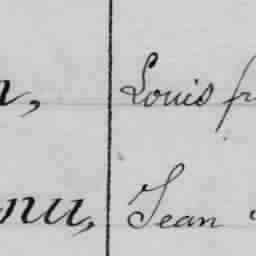 Louis
nu, Jean